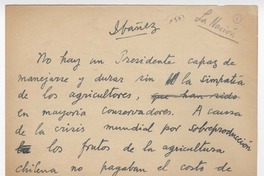 Ibáñez
La Nación
No hay un Presidente capaz de
manejarse y durar sin la simpatía
de los agricultores, que han sido
en mayoría conservadores. A causa
de la crisis mundial por sobreproducción
los frutos de la agricultura
chilena no pagaban el costo de